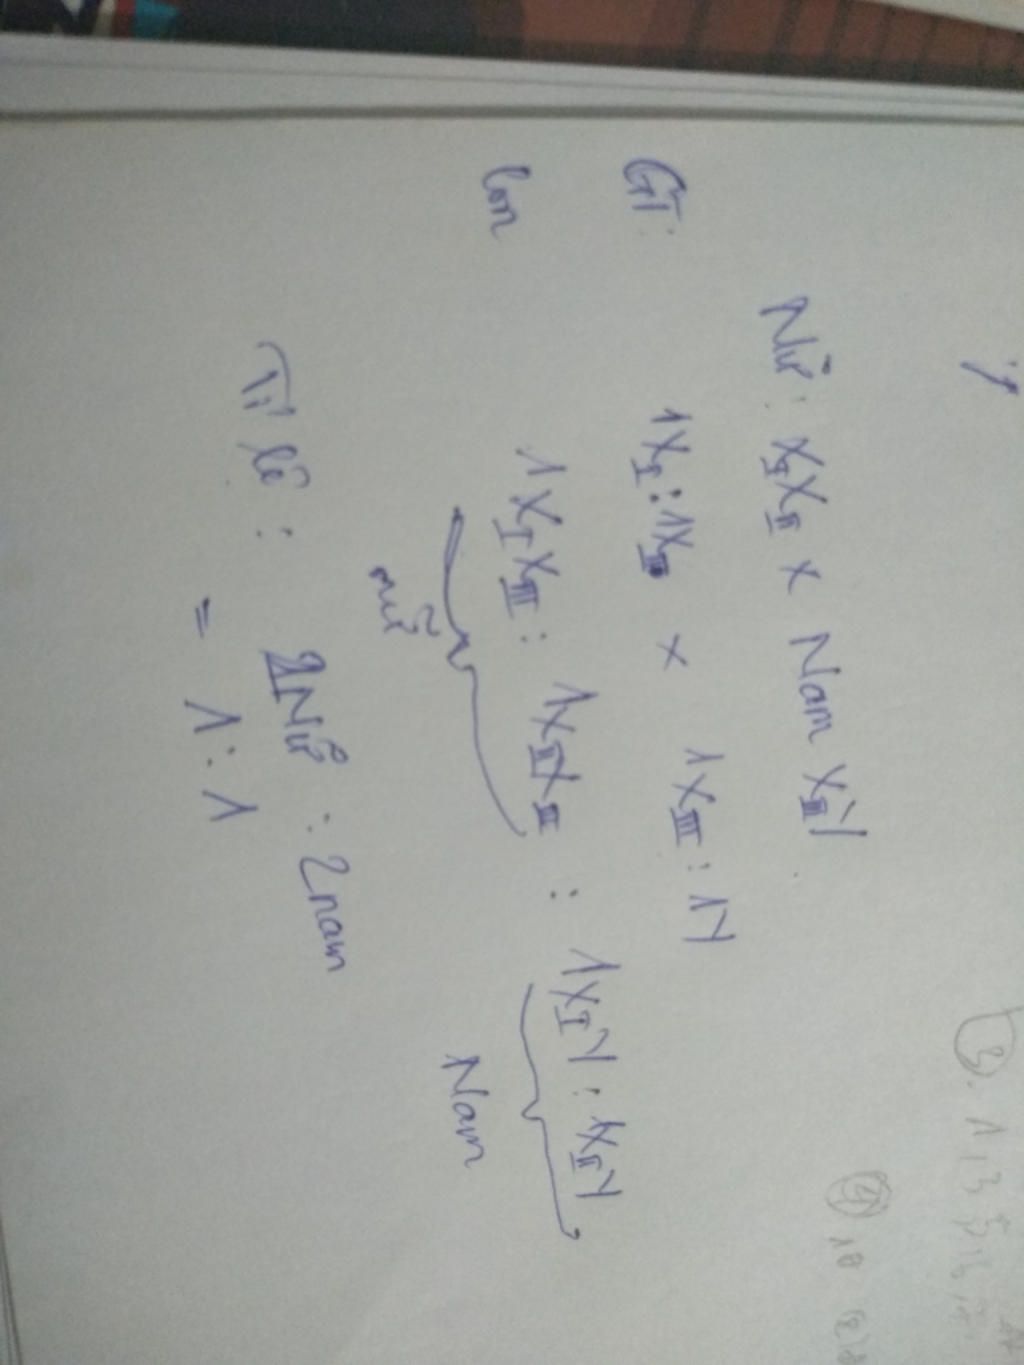 Nữ: X_I X_II × Nam X_III Y
GT: 1X_I : 1X_II × 1X_III : 1Y
Con 1X_I X_III : 1X_II X_III : 1X_I Y : 1X_II Y
nữ Nam
Tỉ lệ : 2Nữ : 2nam
= 1 : 1